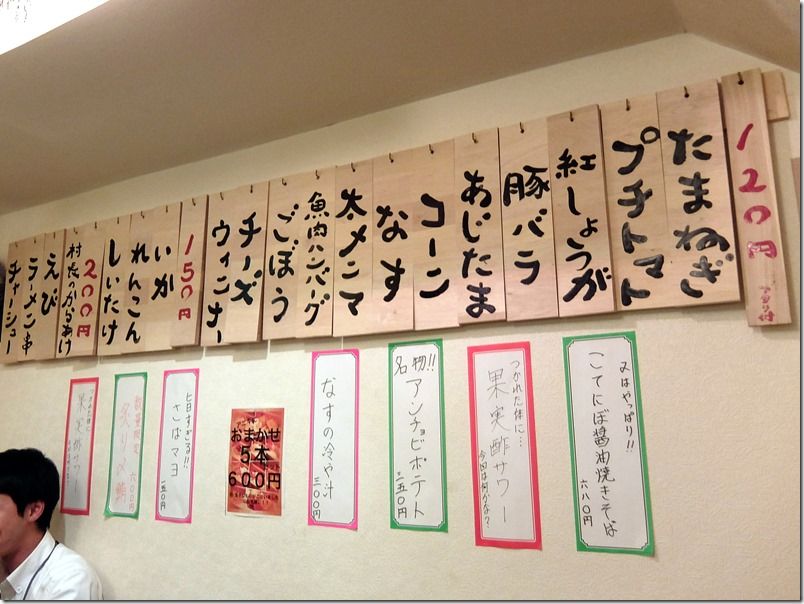 120円
たまねぎ
プチトマト
紅しょうが
豚バラ
あじたま
コーン
なす
太メンマ
魚肉ハンバーグ
ごぼう
チーズ
ウィンナー
150円
いか
れんこん
しいたけ
200円
村長のからあげ
えび
ラーメン串
チャーシュー
〆はやっぱり!!
こてにぼ醤油焼きそば
六八〇円
つかれた体に…
果実酢サワー
今回は何かな？
名物!!
アンチョビポテト
二五〇円
なすの冷や汁
三〇〇円
おまかせ
5本
600円
旨すぎる!!
さばマヨ
一五〇円
数量限定
炙り〆鯖
六〇〇円
つかれた体に
果実酢サワー